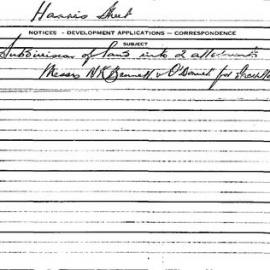 Harris Street
NOTICES - DEVELOPMENT APPLICATIONS - CORRESPONDENCE
SUBJECT
Subdivision of land into 2 allotments
Messrs N K Bennett & O'Daniel for